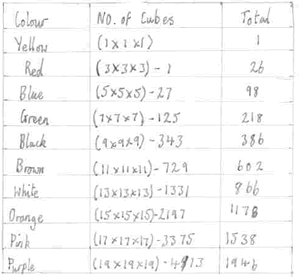 Colour NO. of Cubes Total
Yellow (1x1x1) 1
Red (3x3x3)-1 26
Blue (5x5x5)-27 98
Green (7x7x7)-125 218
Black (9x9x9)-343 386
Brown (11x11x11)-729 602
White (13x13x13)-1331 866
Orange (15x15x15)-2197 1178
Pink (17x17x17)-3375 1538
Purple (19x19x19)-4913 1946